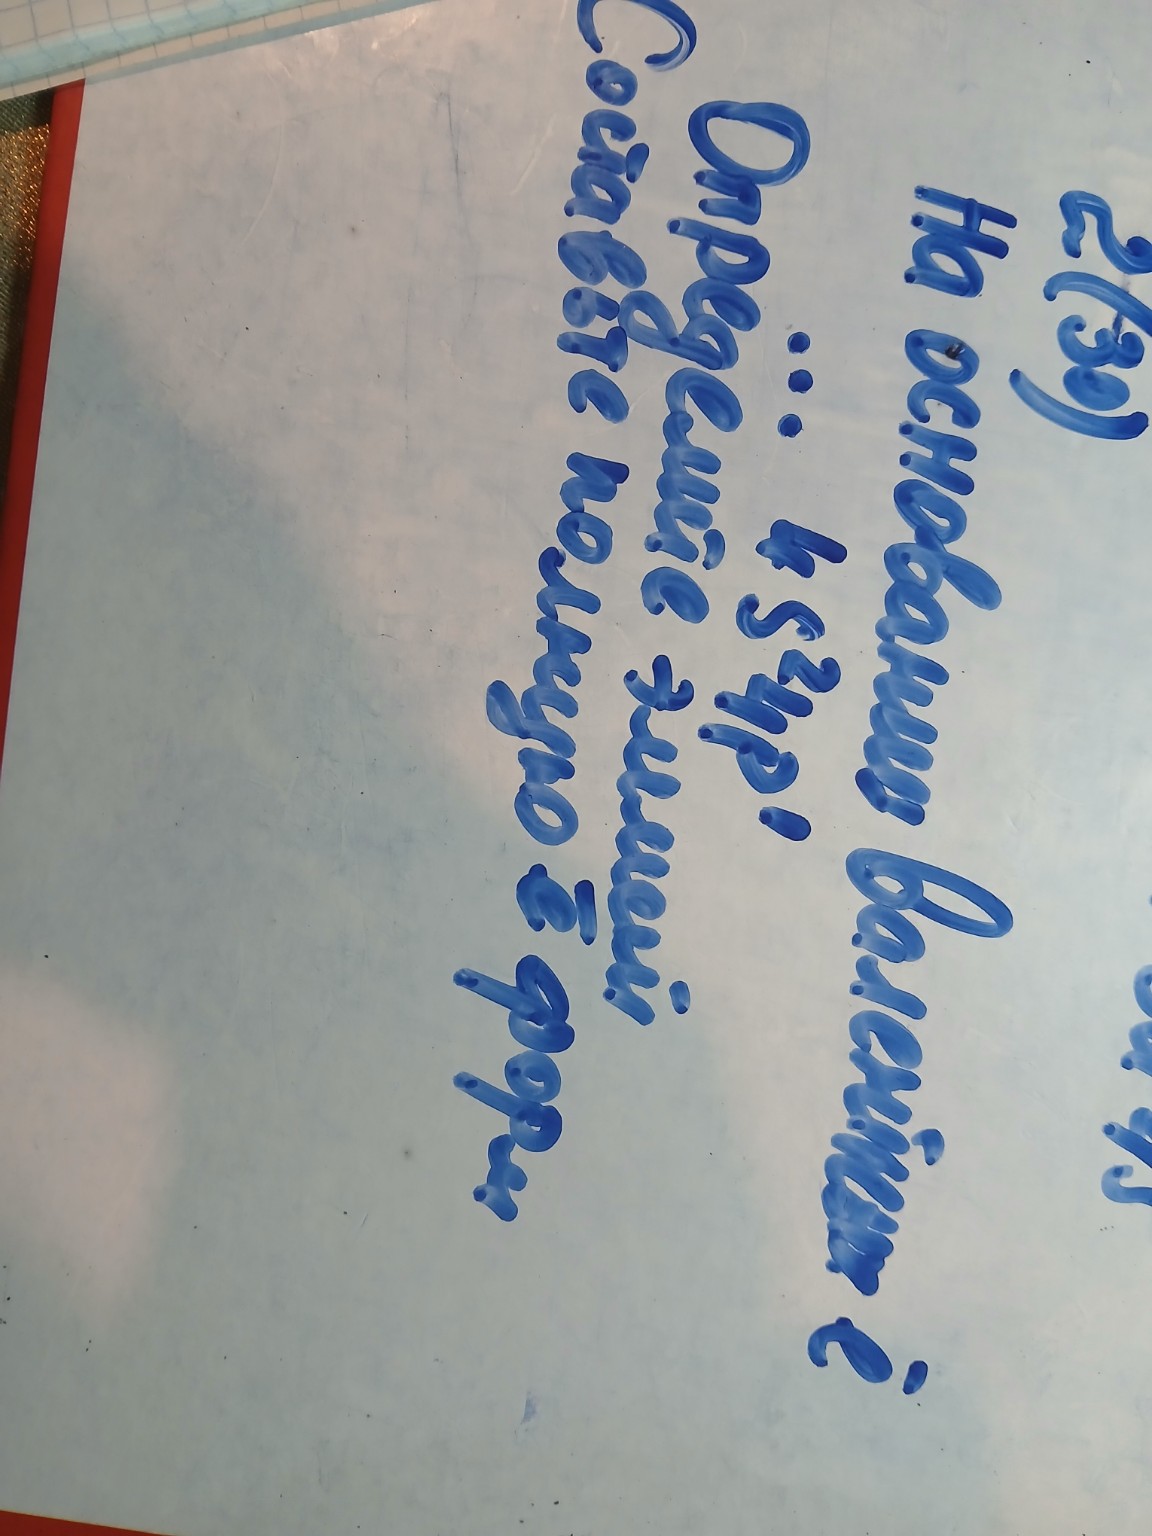 2(30)
На основании валентных ē
... 4s²4p¹
Определите элемент
Составьте полную ē форм